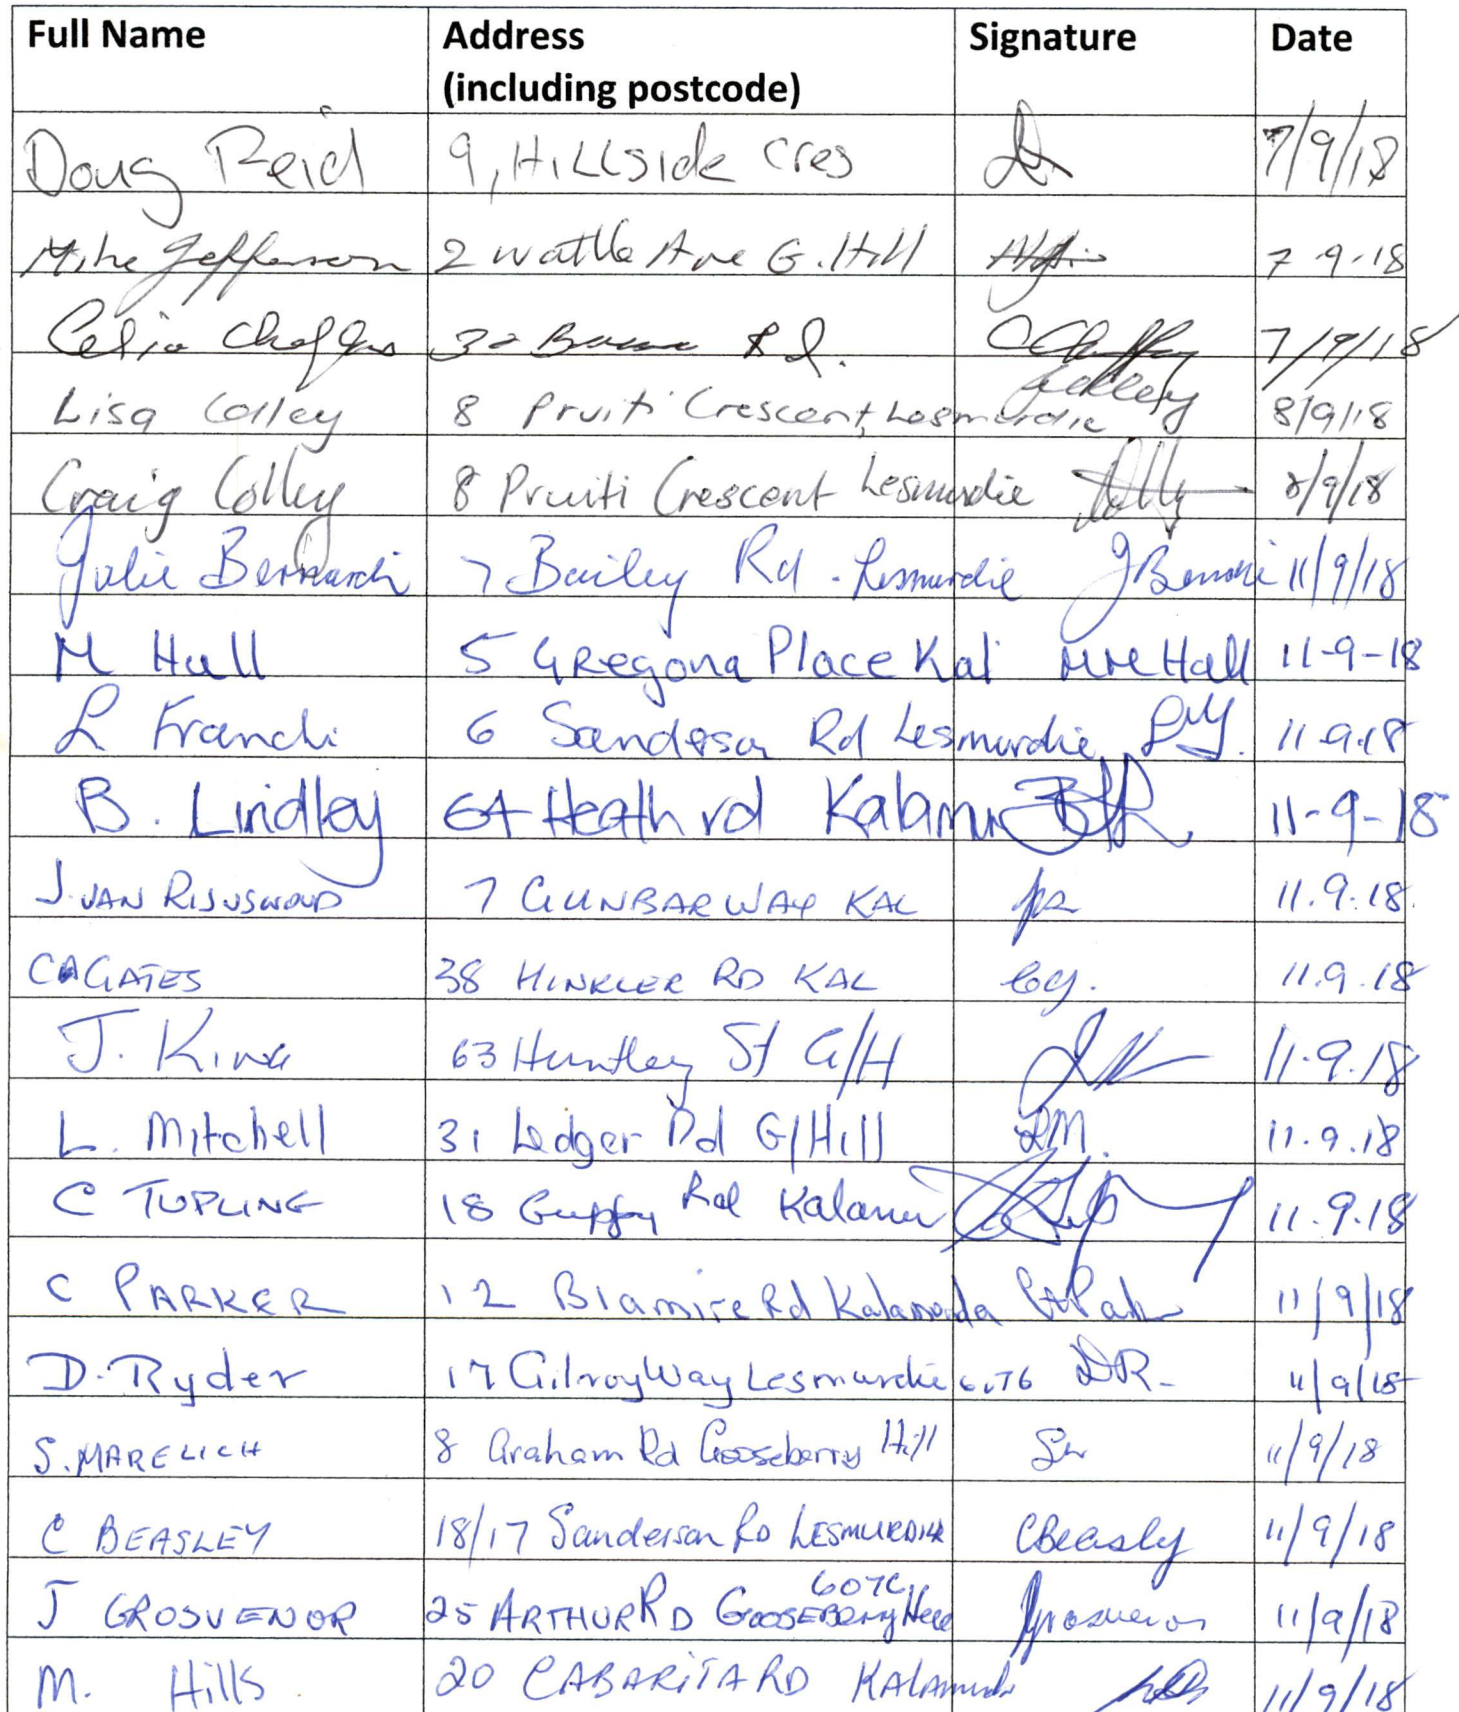 Full Name Address Signature Date
(including postcode)
Doug Reid 9, Hillside Cres 7/9/18
Mike Jefferson 2 Wattle Ave G. Hill 7-9-18
Celia 30 Rd. 7/9/18
Lisa Colley 8 Pruiti Crescent, Lesmurdie Colley 8/9/18
Craig Colley 8 Pruiti Crescent Lesmurdie 8/9/18
Julie Bernardi 7 Bailey Rd. Lesmurdie 11/9/18
M Hall 5 Gregona Place Kal MM Hall 11-9-18
L Franchi 6 Sanderson Rd Lesmurdie 11.9.18
B. Lindley 64 Heath rd 11-9-18
J. VAN RIJNSWOUD 7 GUNBAR WAY KAL 11.9.18
CA GATES 38 HINKLER RD KAL 11.9.18
J. KING 63 Huntley St G/H 11.9.18
L. Mitchell 31 Ledger Rd G/Hill LM. 11.9.18
C TOPLING 18 Guppy Rd 11.9.18
C PARKER 12 Blamire Rd Kalamunda 11/9/18
D. Ryder 17 Gilroy Way Lesmurdie 6076 DR 11/9/18
S. MARELICH 8 Graham Rd Gooseberry Hill 11/9/18
C BEASLEY 18/17 Sanderson RD LESMURDIE CBeasly 11/9/18
J GROSVENOR 25 ARTHUR RD GOOSEBERRY Hill 6076 11/9/18
M. Hills 20 CABARITA RD KALAMUNDA 11/9/18